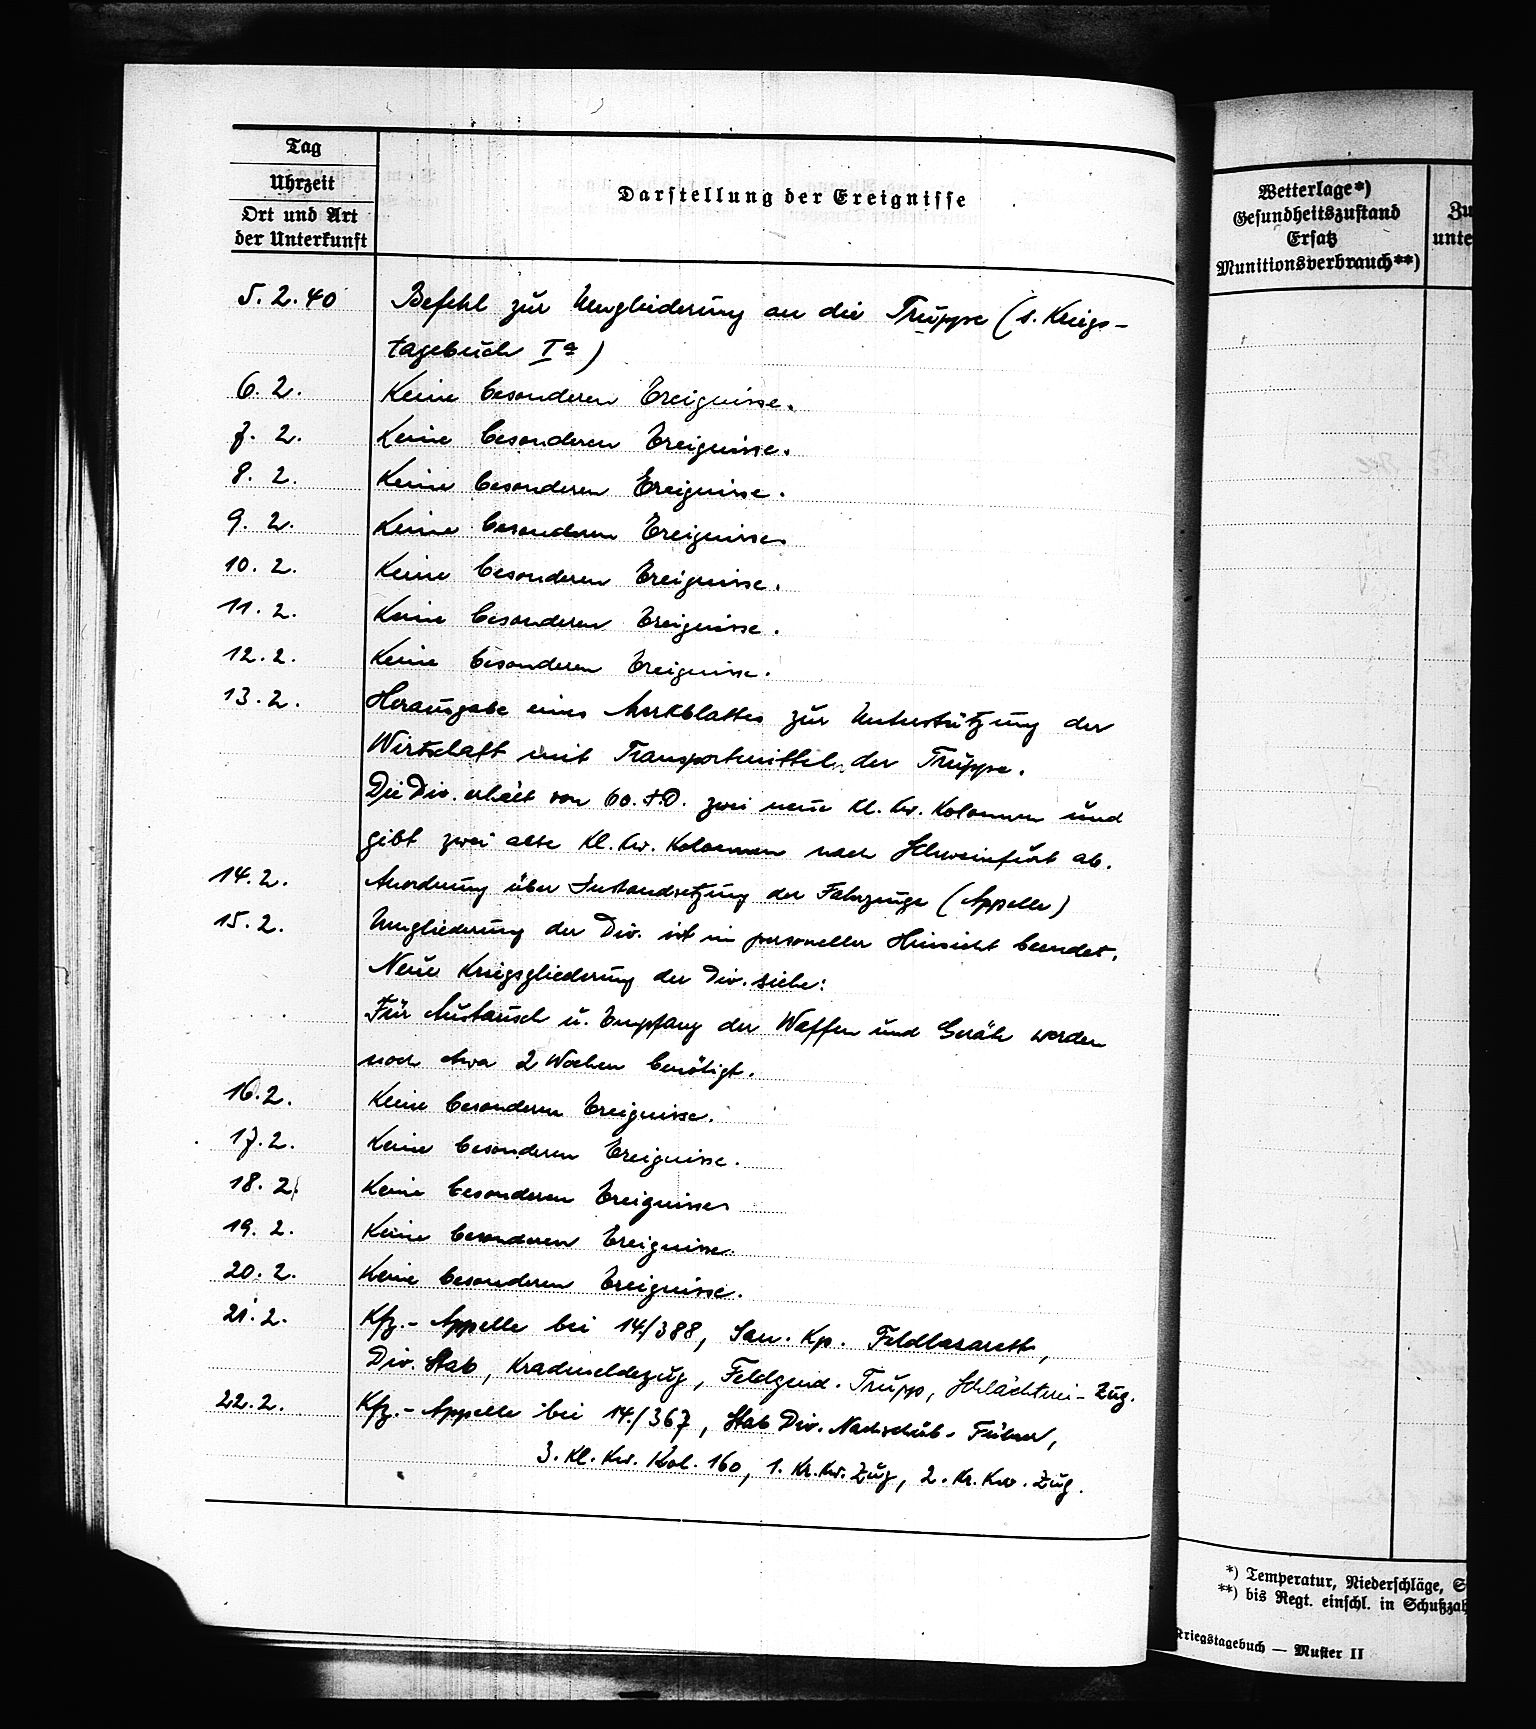 Tag
Uhrzeit
Ort und Art
der Unterkunft
Darstellung der Ereignisse
5. 2. 40 Befehl zur Umgliederung an die Truppe (s. Kriegs-
tagebuch Ia)
6. 2. Keine besonderen Ereignisse.
7. 2. Keine besonderen Ereignisse.
8. 2. Keine besonderen Ereignisse.
9. 2. Keine besonderen Ereignisse
10. 2. Keine besonderen Ereignisse.
11. 2. Keine besonderen Ereignisse.
12. 2. Keine besonderen Ereignisse.
13. 2. Herausgabe eines Merkblattes zur Unterstützung der
Wirtschaft mit Transportmittel der Truppe.
Die Div. erhält von 60. I.D. zwei neue Kl. Kw. Kolonnen und
gibt zwei alte Kl. Kw. Kolonnen nach Schweinfurt ab.
14. 2. Anordnung über Instandsetzung der Fahrzeuge (Appelle)
15. 2. Umgliederung der Div. ist in personeller Hinsicht beendet.
Neue Kriegsgliederung der Div. siehe:
Für Austausch u. Empfang der Waffen und Gerät werden
noch etwa 2 Wochen benötigt.
16. 2. Keine besonderen Ereignisse.
17. 2. Keine besonderen Ereignisse.
18. 2. Keine besonderen Ereignisse
19. 2. Keine besonderen Ereignisse.
20. 2. Keine besonderen Ereignisse.
21. 2. Kfz.-Appelle bei 14./388, San. Kp. Feldlazarett,
Div. Stab, Kradmeldezug, Feldgend. Trupp, Schlächterei-Zug.
22. 2. Kfz.-Appelle bei 14./367, Stab Div. Nachschub-Führer,
3. Kl. Kw. Kol. 160, 1. Kr. Kw. Zug, 2. Kr. Kw. Zug.
Wetterlage*)
Gesundheitszustand
Ersatz
Munitionsverbrauch**)
Zu
unte
*) Temperatur, Niederschläge, S
**) bis Regt. einschl. in Schußzah
Kriegstagebuch — Muster II